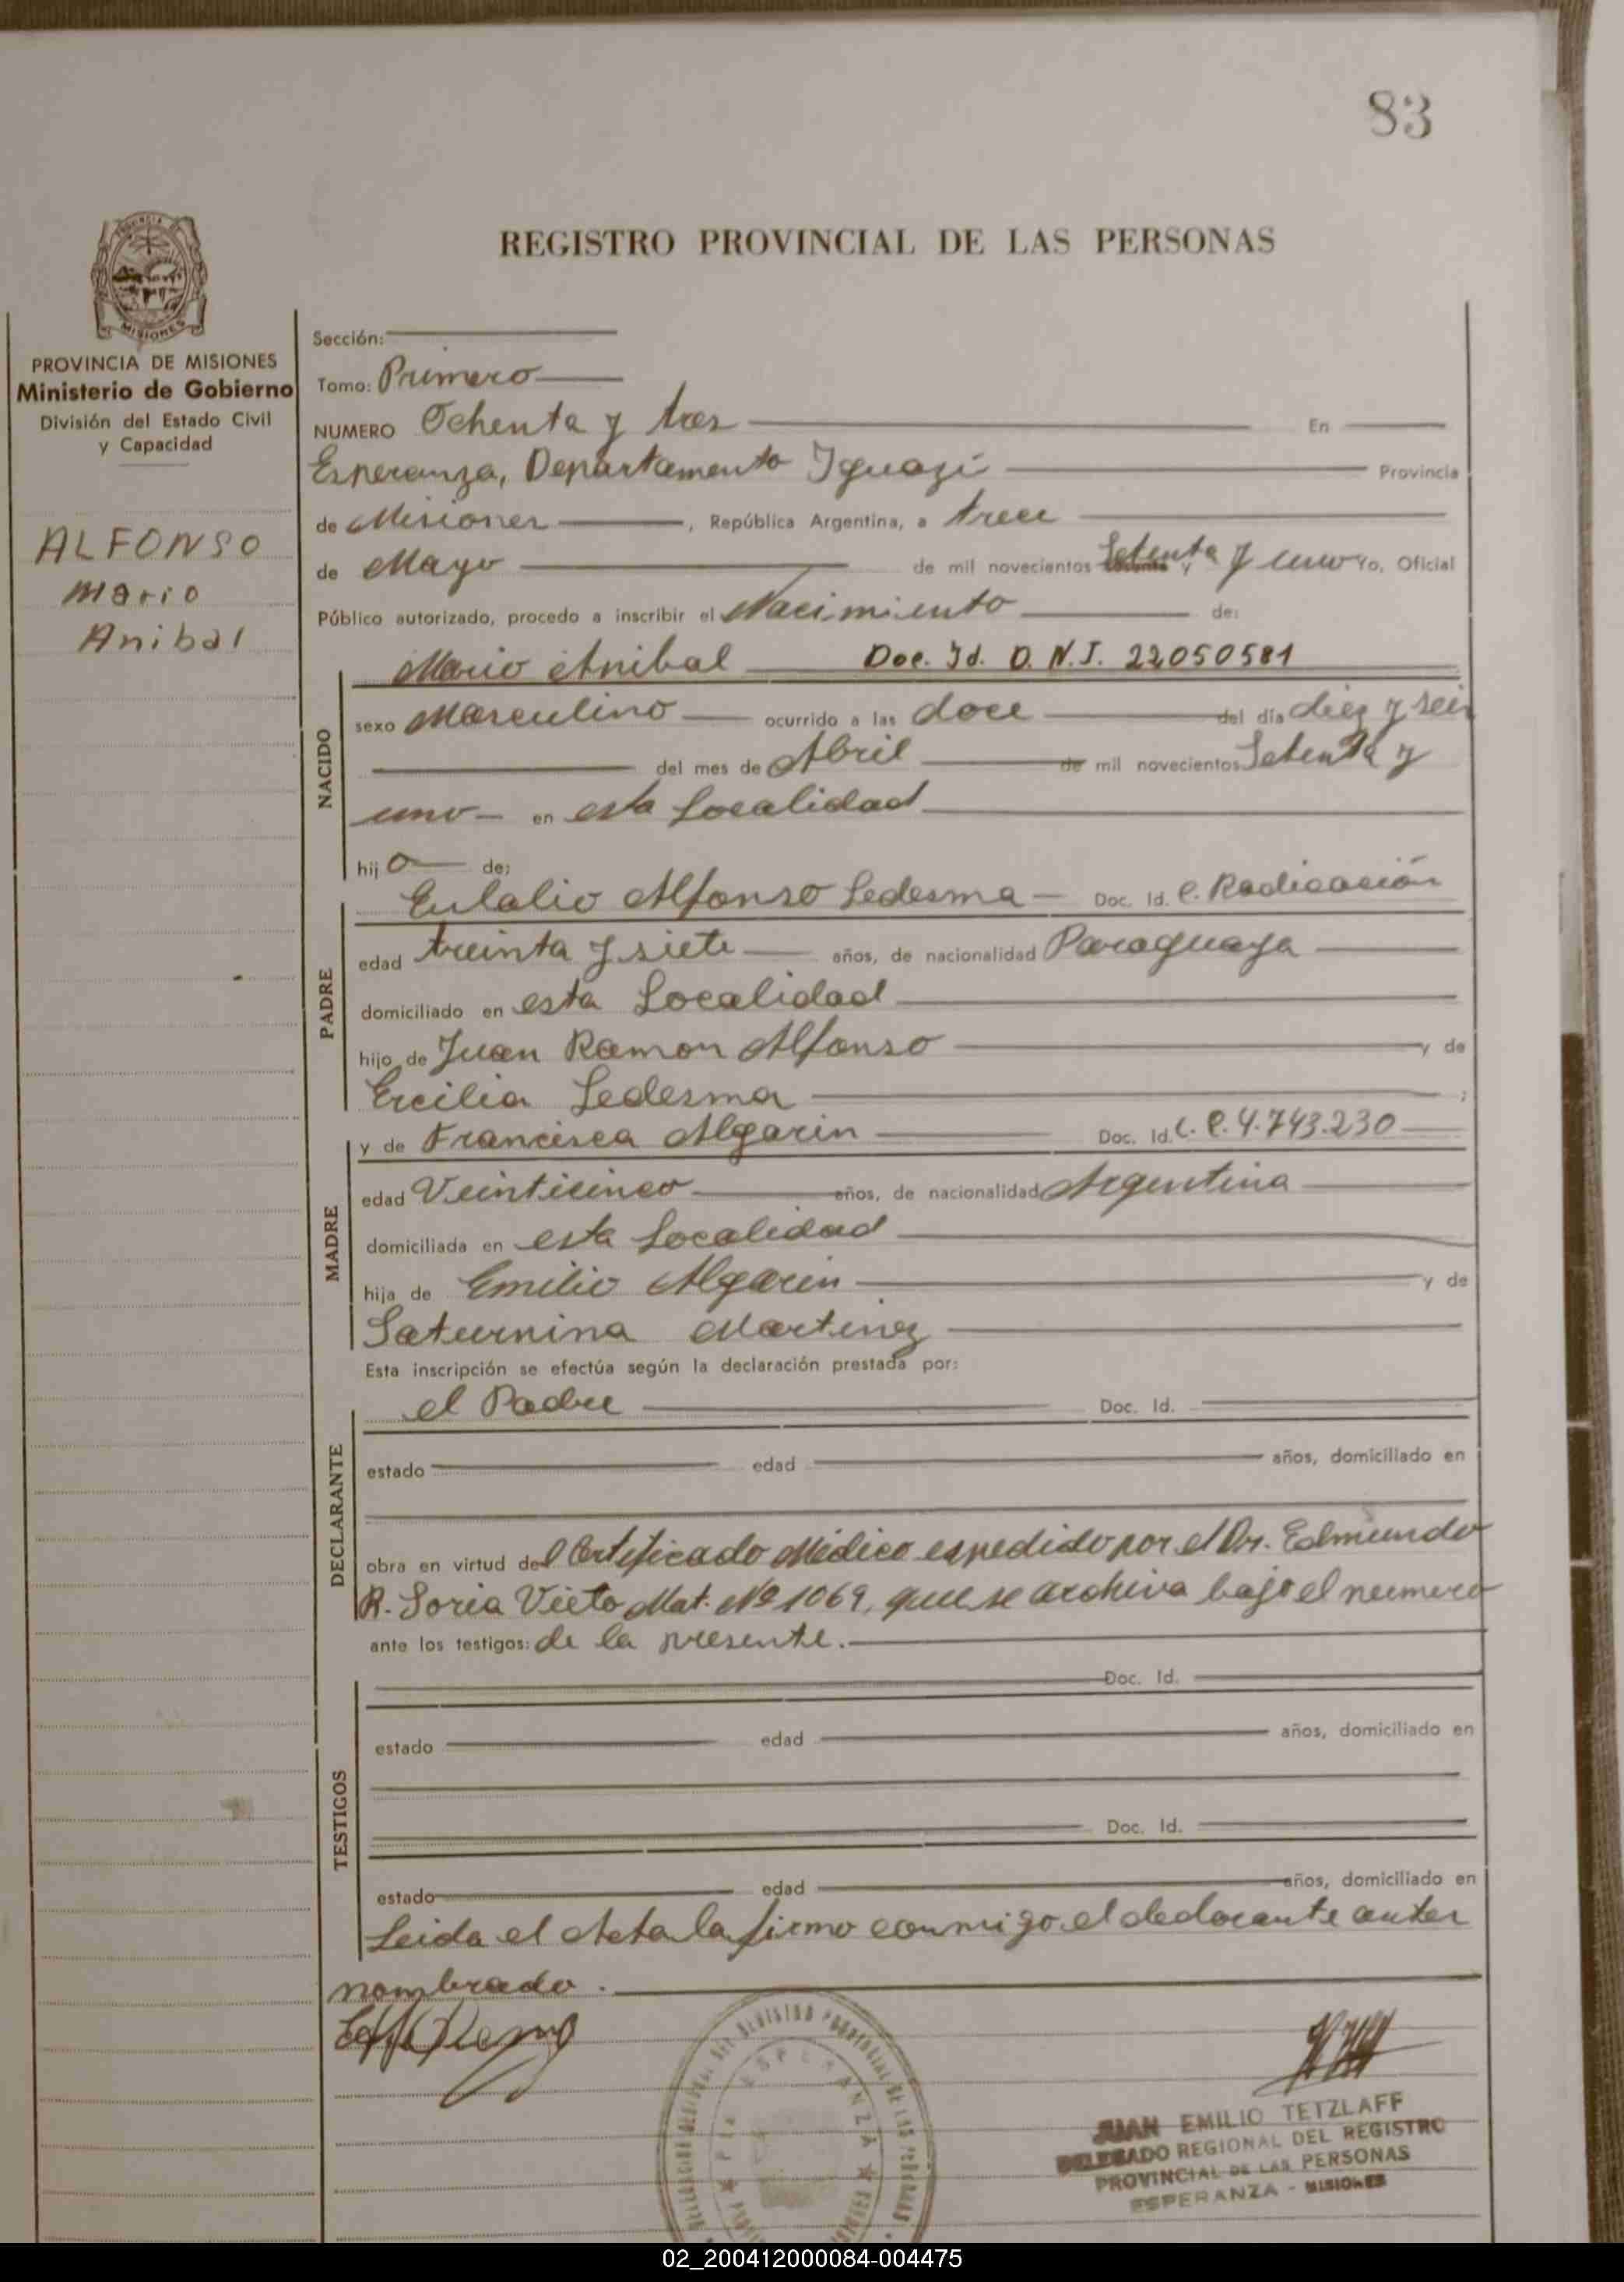 83
REGISTRO PROVINCIAL DE LAS PERSONAS
PROVINCIA DE MISIONES
Ministerio de Gobierno
División del Estado Civil
y Capacidad
ALFONSO
Mario
Anibal
Sección:
Tomo: Primero
NUMERO Ochenta y tres En
Esperanza, Departamento Iguazú Provincia
de Misiones, República Argentina, a trece
de Mayo de mil novecientos Setenta y uno Yo, Oficial
Público autorizado, procedo a inscribir el Nacimiento de:
Mario Anibal Doc. Id. D.N.I. 22050581
NACIDO
sexo Masculino ocurrido a las doce del día diez y seis
del mes de Abril de mil novecientos Setenta y
uno en esta Localidad
hijo de:
PADRE
Eulalio Alfonso Ledesma Doc. Id. C. Radicación
edad treinta y siete años, de nacionalidad Paraguaya
domiciliado en esta Localidad
hijo de Juan Ramon Alfonso y de
Ercilia Ledesma ;
MADRE
y de Francisca Algarin Doc. Id. L. C. 4.743.230
edad Veinticinco años, de nacionalidad Argentina
domiciliada en esta Localidad
hija de Emilio Algarin y de
Saturnina Martinez
Esta inscripción se efectúa según la declaración prestada por:
DECLARANTE
el Padre Doc. Id.
estado edad años, domiciliado en
obra en virtud del Certificado Médico espedido por el Dr. Edmundo
R. Soria Vieto Mat. Nº 1069, que se archiva bajo el numero
ante los testigos: de la presente.
TESTIGOS
Doc. Id.
estado edad años, domiciliado en
Doc. Id.
estado edad años, domiciliado en
Leida el Acta la firmo conmigo el declarante antes
nombrado.
ESPERANZA
JUAN EMILIO TETZLAFF
DELEGADO REGIONAL DEL REGISTRO
PROVINCIAL DE LAS PERSONAS
ESPERANZA - MISIONES
02_200412000084-004475